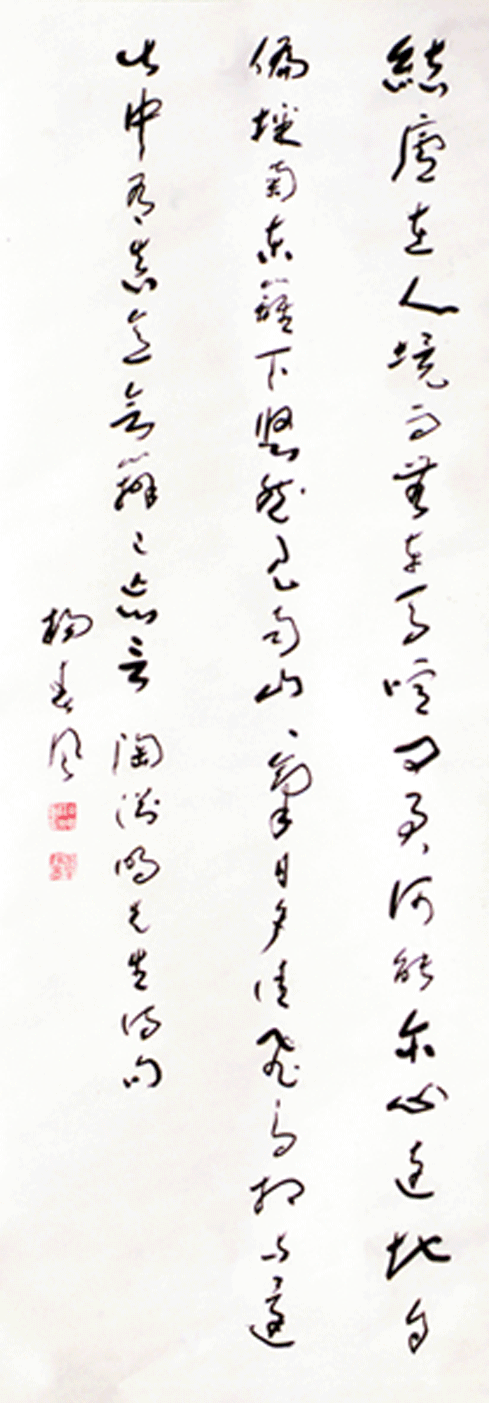 結廬在人境而無車馬喧問君何能尔心遠地自
偏採菊東籬下悠然見南山々氣日夕佳飛鳥相与還
此中有真意欲辨已忘言 陶淵明先生詩句
楊春風